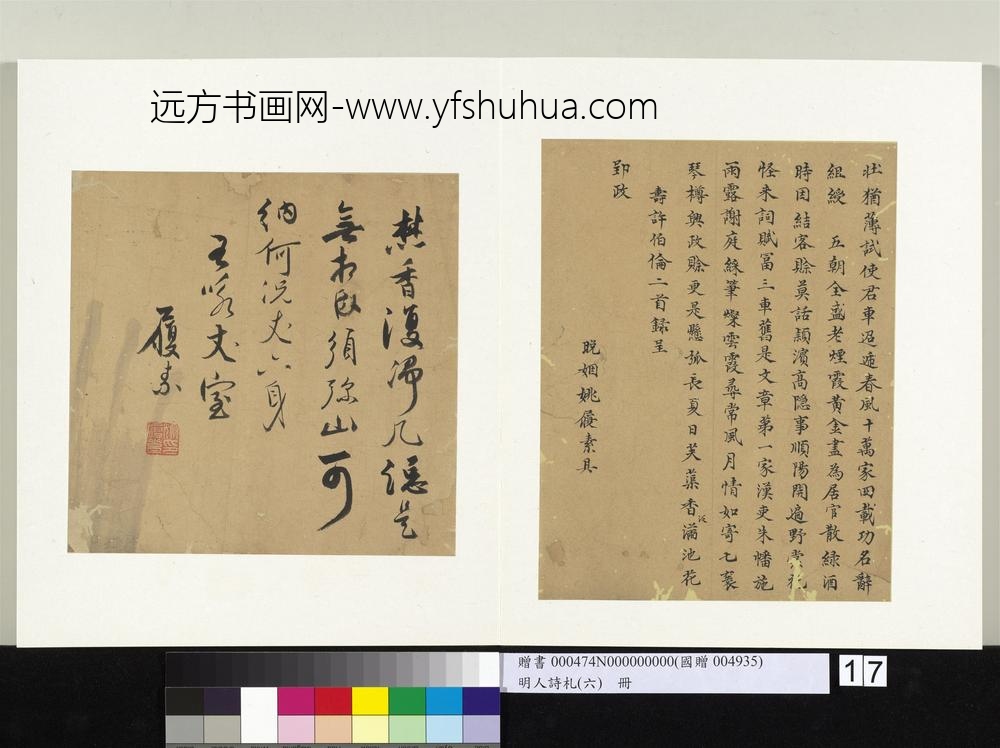 远方书画网-www.yfshuhua.com
壯猶薄試使君車迢遞春風十萬家四載功名辭
組綬 五朝全盛老煙霞黃金盡為居官散綠酒
時因結客賒莫話潁濱高隱事順陽開遍野棠花
怪來詞賦富三車舊是文章第一家漢吏朱幡施
雨露謝庭綵筆燦雲霞尋常風月情如寄七袠
琴樽興政賒更是懸弧長夏日芙蕖香滿池花
壽許伯倫二首録呈
郢政
晚姻姚履素具
焚香復帚几
無求臥須弥山可
納何況丈六身
丈室
履素
贈書 000474N000000000(國贈 004935)
明人詩札(六) 冊
17